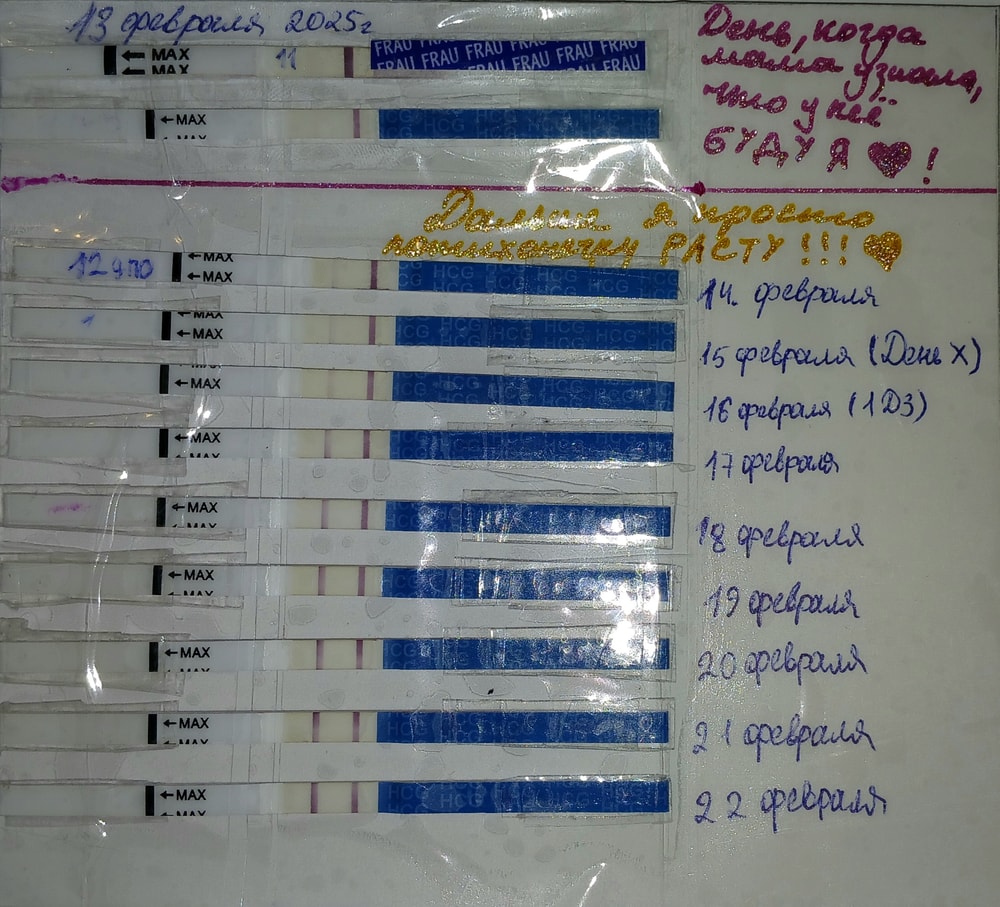 13 февраля 2025г
MAX
MAX
11
FRAU FRAU FRAU FRAU
FRAU FRAU FRAU FRAU FRAU
День, когда
мама узнала,
что у неё
БУДУ Я ❤ !
MAX
HCG HCG HCG
Дальше я просто
потихонечку РАСТУ !!! ❤
12 дпо
MAX
MAX
HCG HCG HCG
14 февраля
MAX
MAX
HCG HCG HCG
15 февраля (День X)
MAX
HCG HCG HCG
16 февраля (1ДЗ)
MAX
HCG HCG
17 февраля
MAX
18 февраля
MAX
19 февраля
MAX
HCG HCG
20 февраля
MAX
MAX
HCG HCG
21 февраля
MAX
MAX
HCG HCG
22 февраля